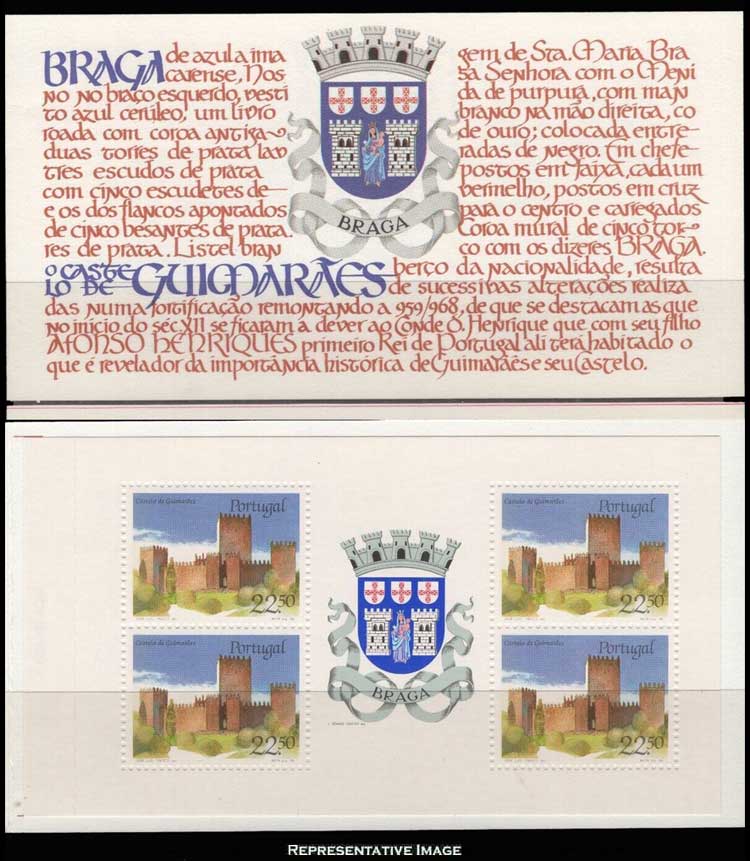 BRAGA de azul a ima gem de Sta. Maria Bra
carense, Nos sa Senhora com o Meni
no no braço esquerdo, vesti da de purpura, com man
to azul cerúleo, um livro branco na mão direita, co
roada com coroa antiga de ouro; colocada entre
duas torres de prata lav radas de negro. Em chefe
tres escudos de prata postos em faixa, cada um
com cinco escudetes de vermelho, postos em cruz
e os dos flancos apontados para o centro e carregados
de cinco besantes de prata. Coroa mural de cinco tor
res de prata. Listel bran co com os dizeres BRAGA.
BRAGA
O CASTE
LO DE GUIMARÃES berço da nacionalidade, resulta
de sucessivas alterações realiza
das numa fortificação remontando a 959/968, de que se destacam as que
no início do séc. XII se ficaram a dever ao Conde D. Henrique que com seu filho
AFONSO HENRIQUES primeiro Rei de Portugal ali terá habitado o
que é revelador da importância histórica de Guimarães e seu Castelo.
Castelo de Guimarães
Portugal
22.50
Castelo de Guimarães
Portugal
22.50
BRAGA
Castelo de Guimarães
Portugal
22.50
Castelo de Guimarães
Portugal
22.50
REPRESENTATIVE IMAGE